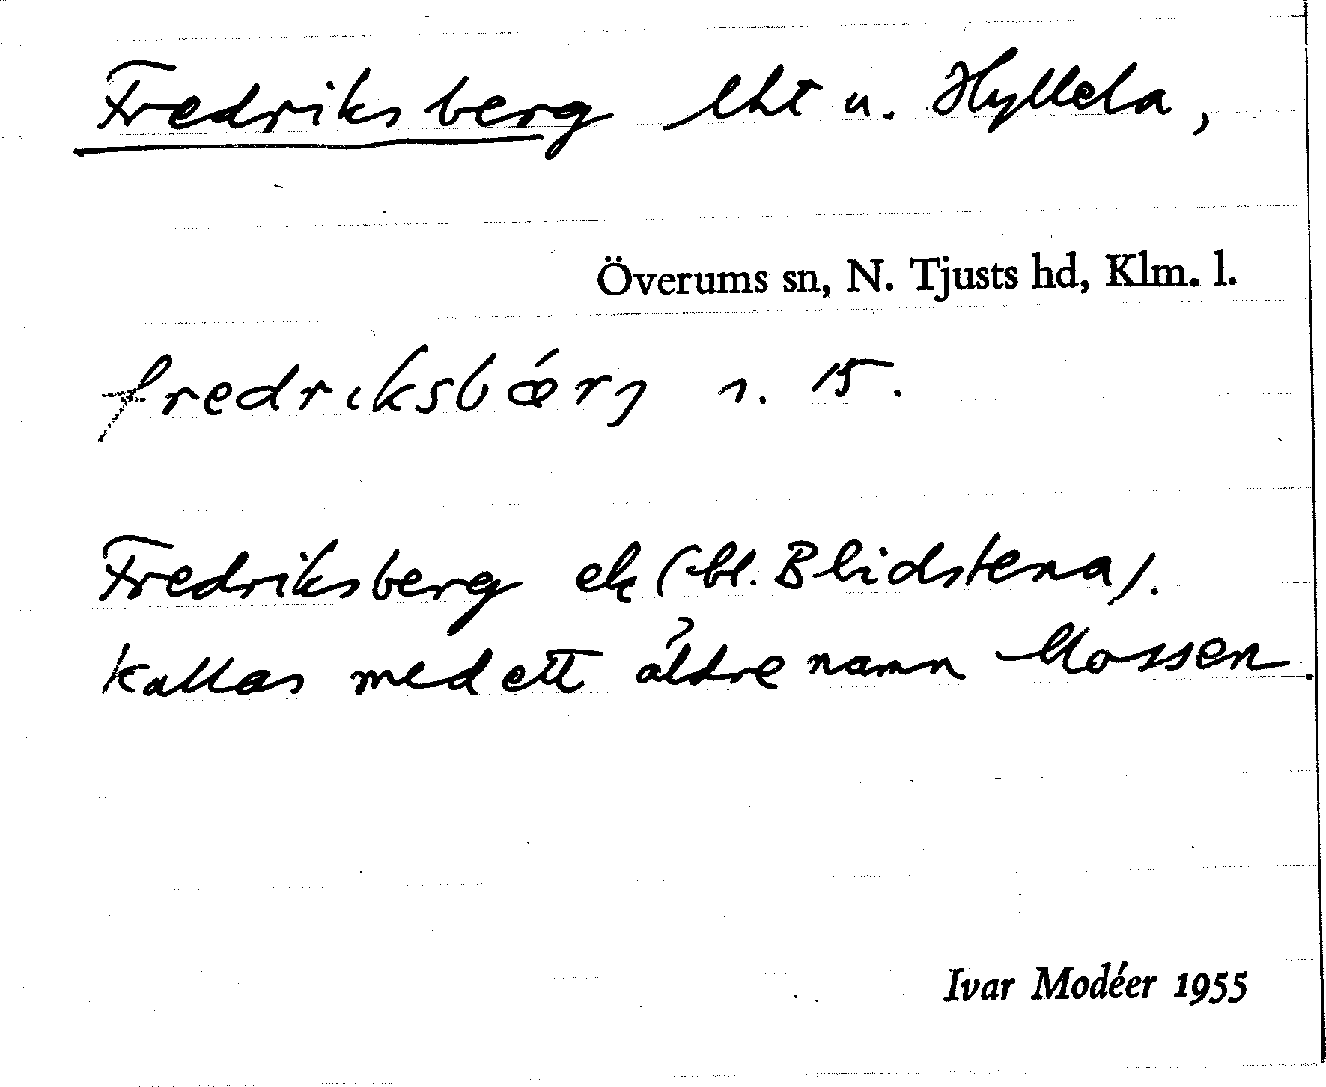 Fredriksberg lht u. Hyllela,
Överums sn, N. Tjusts hd, Klm. l.
fredriksbǽrj 1. 15.
Fredriksberg ek (bl. Blidstena).
Kallas med ett äldre namn Mossen.
Ivar Modéer 1955